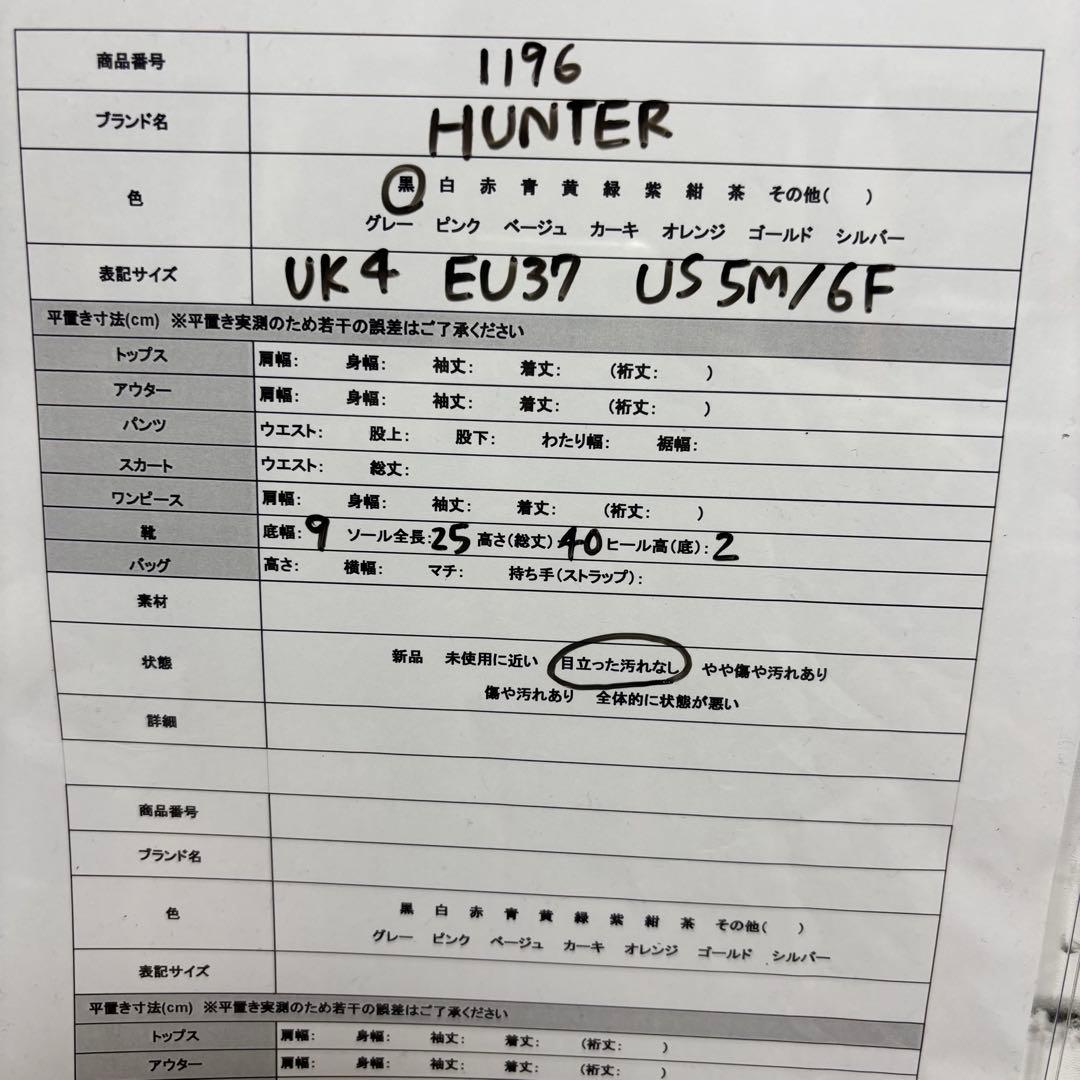 商品番号 1196
ブランド名 HUNTER
色 黒 白 赤 青 黄 緑 紫 紺 茶 その他( )
グレー ピンク ベージュ カーキ オレンジ ゴールド シルバー
表記サイズ UK4 EU37 US5M/6F
平置き寸法(cm) ※平置き実測のため若干の誤差はご了承ください
トップス 肩幅: 身幅: 袖丈: 着丈: (裄丈: )
アウター 肩幅: 身幅: 袖丈: 着丈: (裄丈: )
パンツ ウエスト: 股上: 股下: わたり幅: 裾幅:
スカート ウエスト: 総丈:
ワンピース 肩幅: 身幅: 袖丈: 着丈: (裄丈: )
靴 底幅: 9 ソール全長: 25 高さ(総丈) 40 ヒール高(底): 2
バッグ 高さ: 横幅: マチ: 持ち手(ストラップ):
素材
状態 新品 未使用に近い 目立った汚れなし やや傷や汚れあり
傷や汚れあり 全体的に状態が悪い
詳細
商品番号
ブランド名
色 黒 白 赤 青 黄 緑 紫 紺 茶 その他( )
グレー ピンク ベージュ カーキ オレンジ ゴールド シルバー
表記サイズ
平置き寸法(cm) ※平置き実測のため若干の誤差はご了承ください
トップス 肩幅: 身幅: 袖丈: 着丈: (裄丈: )
アウター 肩幅: 身幅: 袖丈: 着丈: (裄丈: )